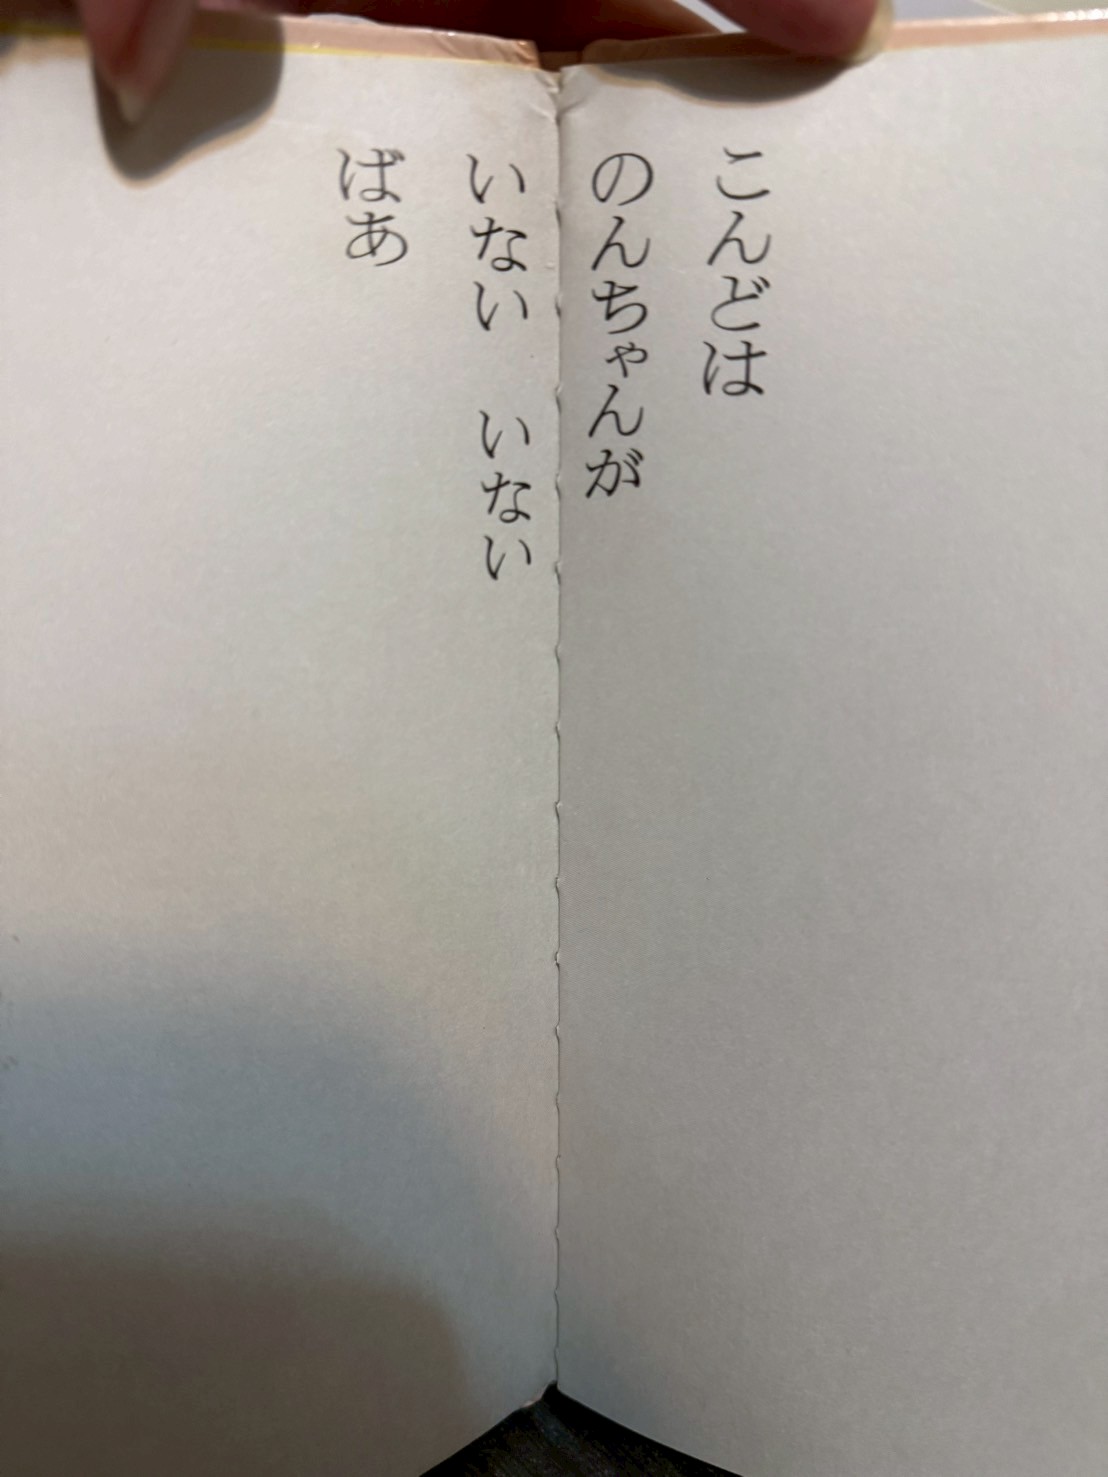 こんどは
のんちゃんが
いない　いない
ばあ